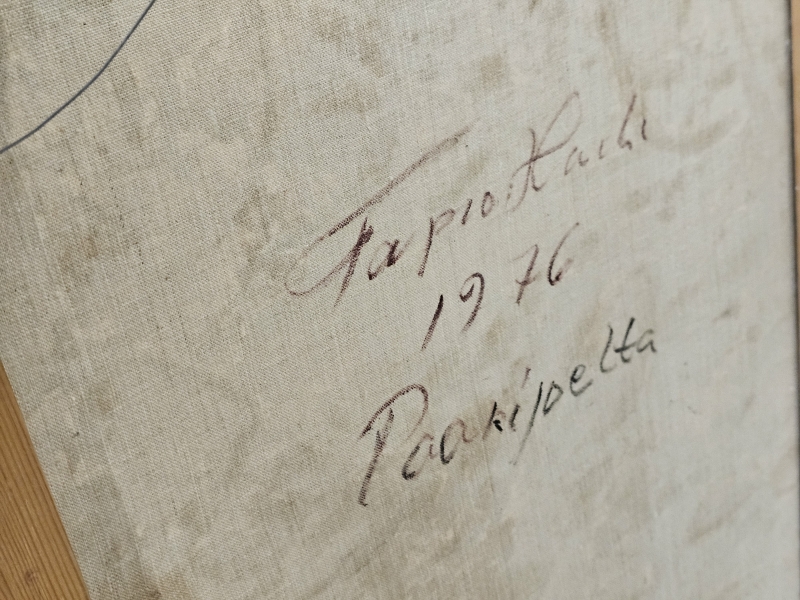 Tapio Hach
1976
Paakijoelta